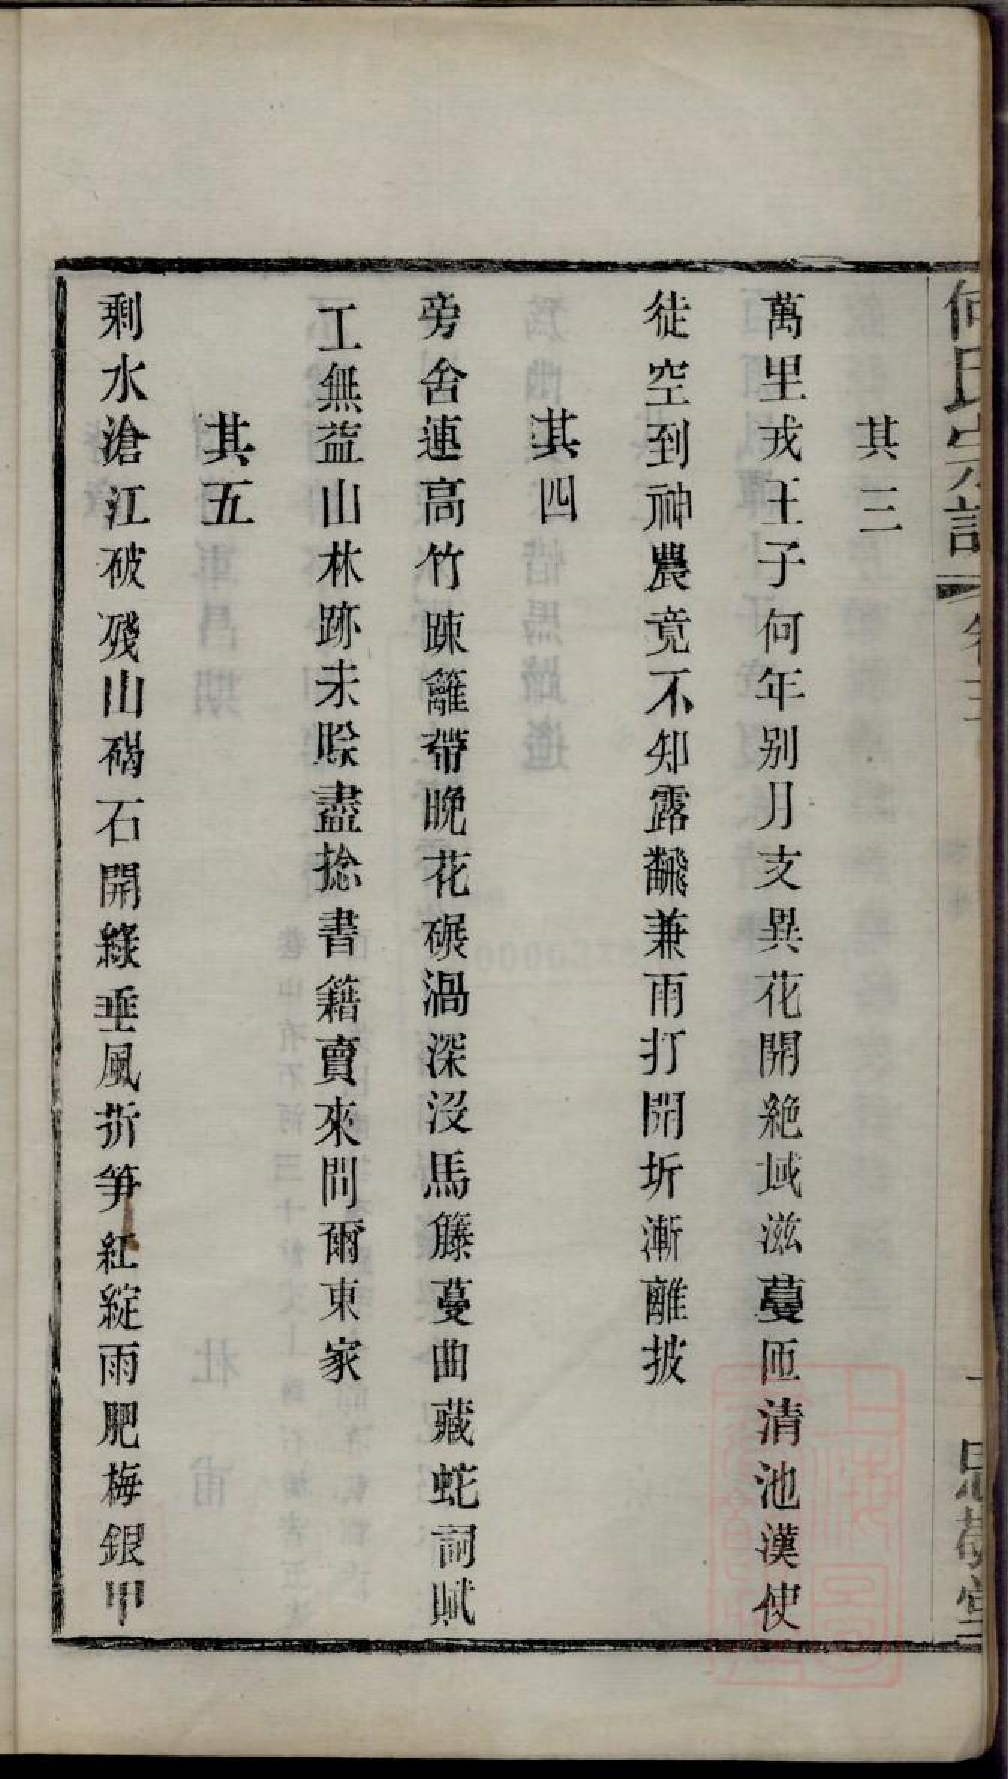 何氏宗譜 卷三 一 思敬堂
其三
萬里戎王子何年別月支異花開絶域滋蔓匝清池漢使
徒空到神農竟不知露飜兼雨打開坼漸離披
其四
旁舍連高竹踈籬帶晚花碾渦深没馬籐蔓曲藏蛇詞賦
工無益山林跡未賖盡捻書籍賣來問爾東家
其五
剩水滄江破殘山碣石開綠垂風折笋紅綻雨肥梅銀甲